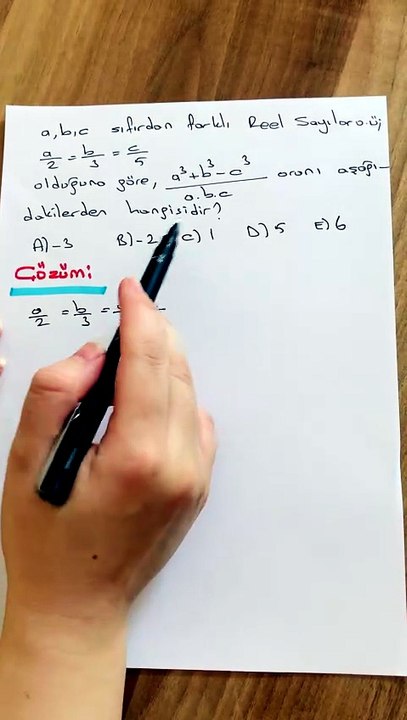 a,b,c sıfırdan farklı Reel Sayılar
a/2 = b/3 = c/5
olduğuna göre, a³+b³-c³/a.b.c oranı aşağı-
dakilerden hangisidir?
A)-3 B)-2 C) 1 D) 5 E) 6
Çözüm:
a/2 = b/3 =